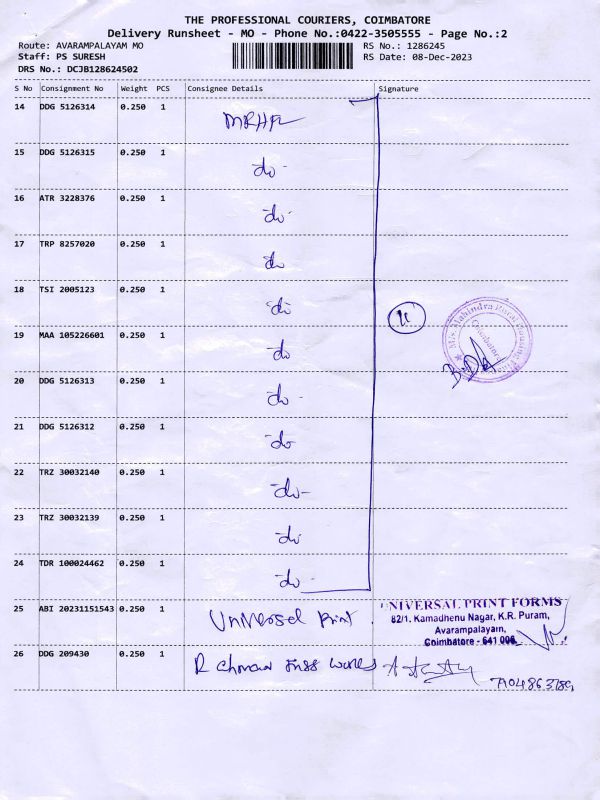 THE PROFESSIONAL COURIERS, COIMBATORE
Delivery Runsheet - MO - Phone No.:0422-3505555 - Page No.:2
Route: AVARAMPALAYAM MO RS No.: 1286245
Staff: PS SURESH RS Date: 08-Dec-2023
DRS No.: DCJB128624502
S No Consignment No Weight PCS Consignee Details Signature
14 DDG 5126314 0.250 1 MRHFL
15 DDG 5126315 0.250 1 do
16 ATR 3228376 0.250 1 do
17 TRP 8257020 0.250 1 do
18 TSI 2005123 0.250 1 do
11
M/s. Mahindra Rural Housing
Coimbatore
19 MAA 105226601 0.250 1 do
20 DDG 5126313 0.250 1 do
21 DDG 5126312 0.250 1 do
22 TRZ 30032140 0.250 1 do
23 TRZ 30032139 0.250 1 do
24 TDR 100024462 0.250 1 do
25 ABI 20231151543 0.250 1 Universal Print
UNIVERSAL PRINT FORMS
82/1, Kamadhenu Nagar, K.R. Puram,
Avarampalayam,
Coimbatore - 641 006.
26 DDG 209430 0.250 1 R works